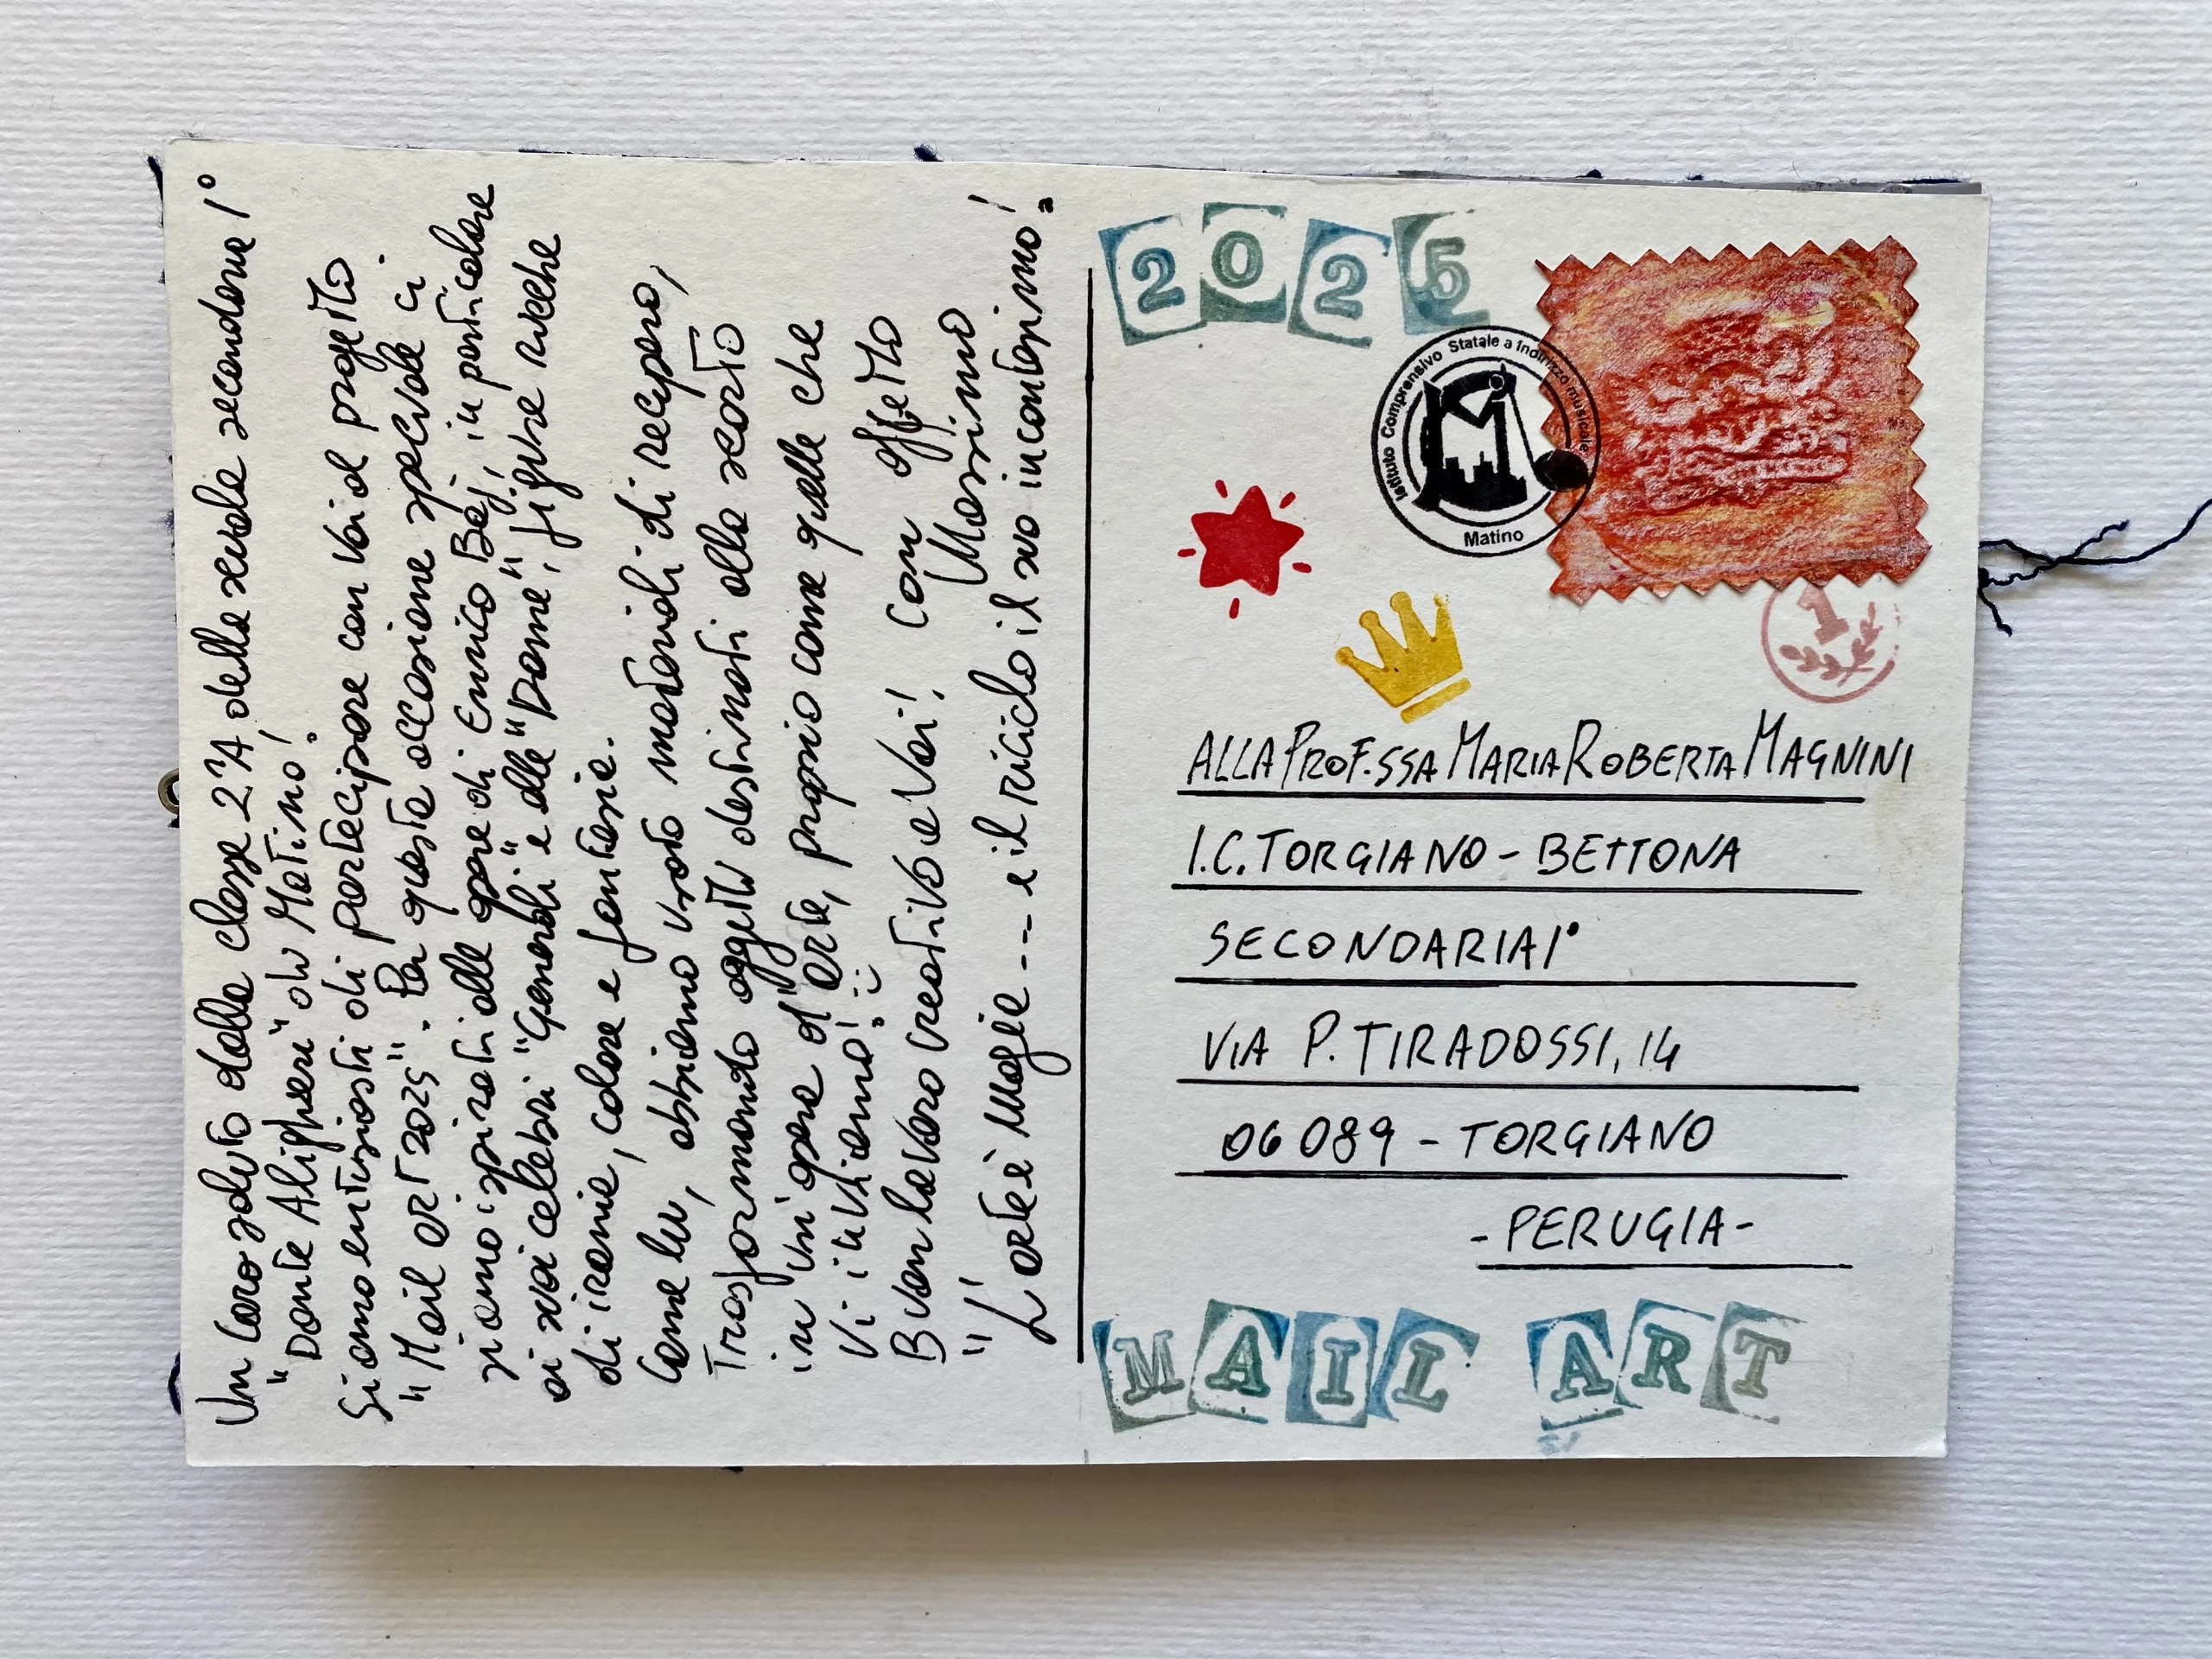 Un caro saluto dalla classe 2ªA della scuola secondaria 1°
"Dante Alighieri" di Matino!
Siamo entusiasti di partecipare con voi al progetto
"Mail art 2025". Per questa occasione speciale ci
siamo ispirati alle opere di Enrico Baj, in particolare
ai suoi celebri "Generali" e alle "Dame", figure ricche
di ironia, colore e fantasia.
Come lui, abbiamo usato materiali di recupero,
trasformando oggetti destinati allo scarto
in un'opera d'arte, proprio come quelle che
Vi inviamo!
Buon lavoro creativo a Voi! Con affetto
Massimo
"L'arte è magia --- e il riciclo il suo incantesimo!"
2025
Istituto Comprensivo Statale a Indirizzo musicale
Matino
1
ALLA PROF.SSA MARIA ROBERTA MAGNINI
I.C. TORGIANO - BETTONA
SECONDARIA 1°
VIA P. TIRADOSSI, 14
06089 - TORGIANO
- PERUGIA -
MAIL ART